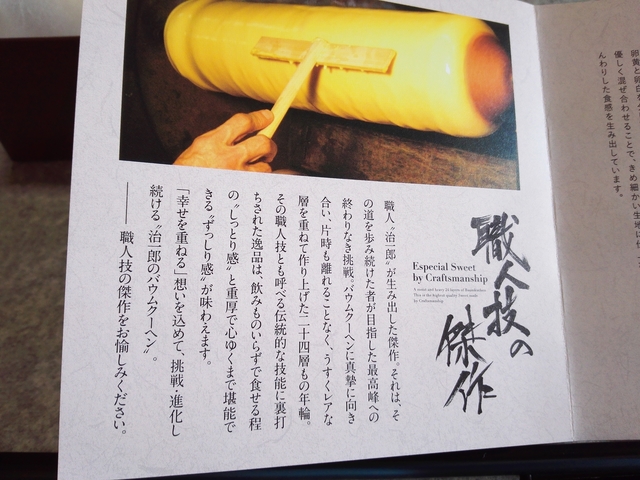 卵黄と卵白を
優しく混ぜ合わせることで、きめ細かい生地に
んわりした食感を生み出しています。
職人技の
傑作
Especial Sweet
by Craftsmanship
職人〝治一郎〟が生み出した傑作。それは、そ
の道を歩み続けた者が目指した最高峰への
終わりなき挑戦。バウムクーヘンに真摯に向き
合い、片時も離れることなく、うすくレアな
層を重ねて作り上げた二十四層もの年輪。
その職人技とも呼べる伝統的な技能に裏打
ちされた逸品は、飲みものいらずで食せる程
の〝しっとり感〟と重厚で心ゆくまで堪能で
きる〝ずっしり感〟が味わえます。
「幸せを重ねる」想いを込めて、挑戦・進化し
続ける〝治一郎のバウムクーヘン〟。
――職人技の傑作をお愉しみください。